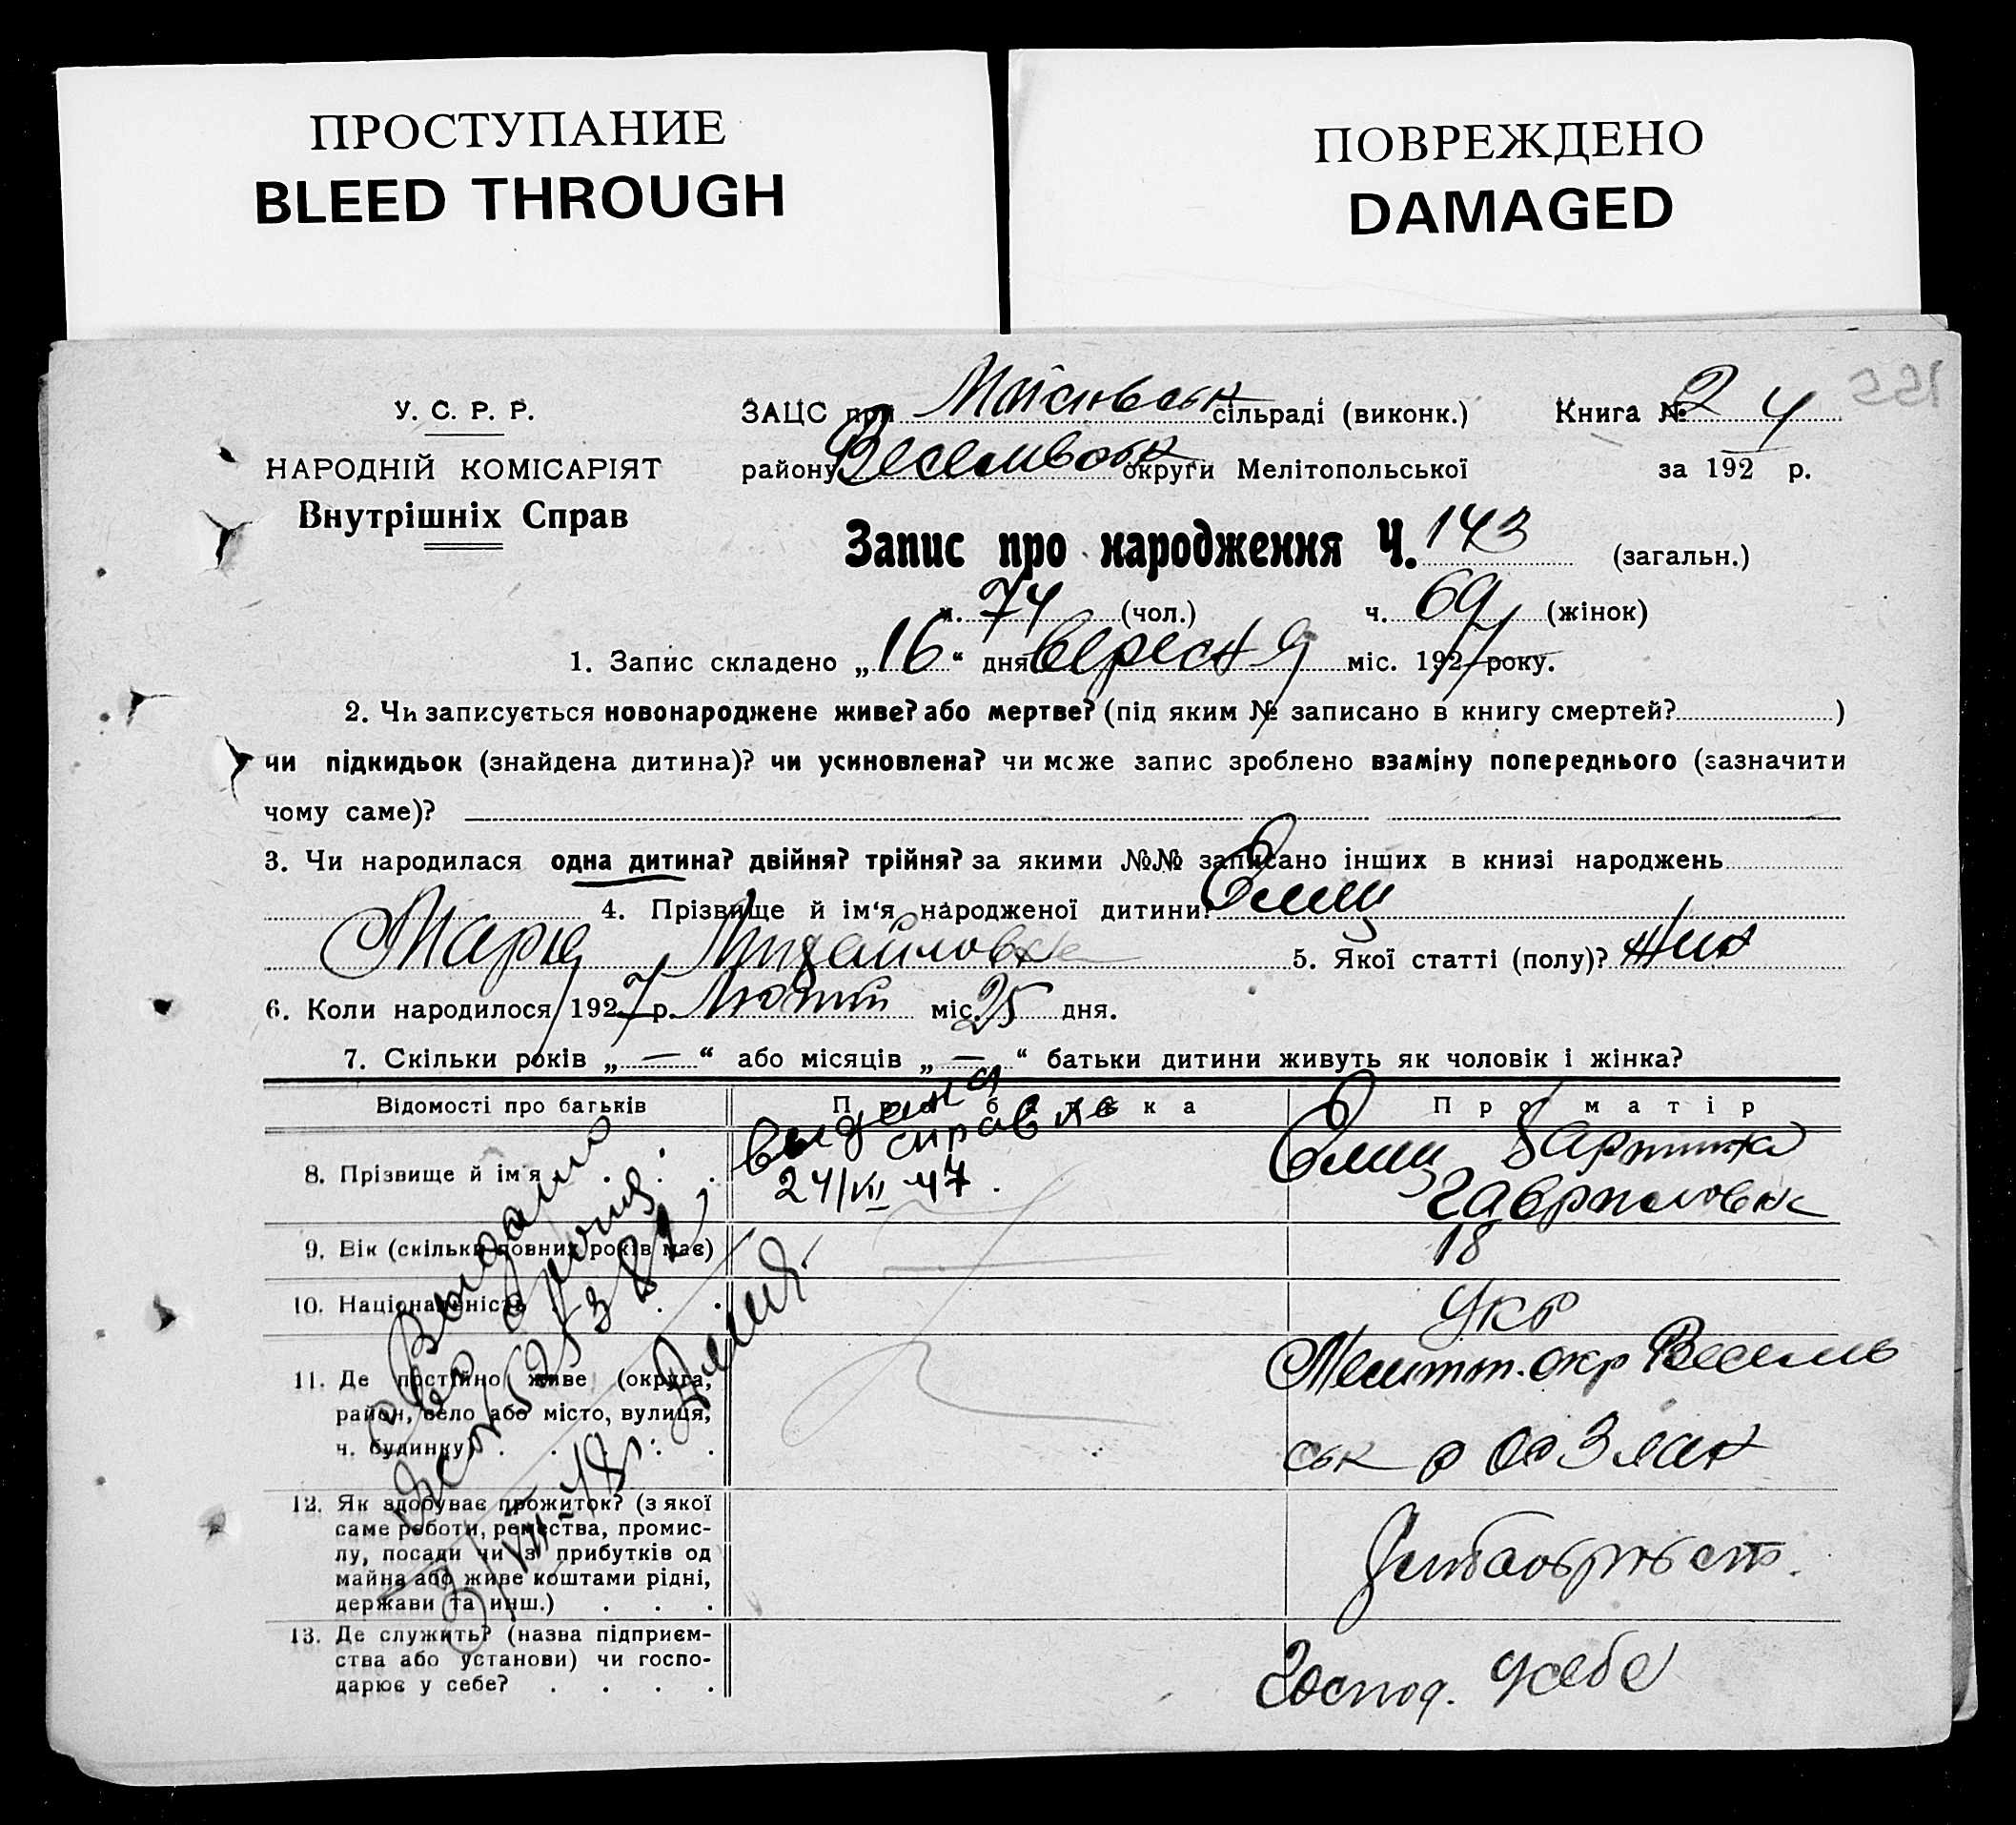 ПРОСТУПАНИЕ
BLEED THROUGH
ПОВРЕЖДЕНО
DAMAGED
221
У. С. Р. Р.
НАРОДНІЙ КОМІСАРІЯТ
Внутрішніх Справ
ЗАЦС при сільраді (виконк.) Книга № 2 4
району округи Мелітопольської за 192 р.
Запис про народження Ч. 143 (загальн.)
ч. 74 (чол.) ч. 69 (жінок)
1. Запис складено „ 16 “ дня вересня міс. 1927 року.
2. Чи записується новонароджене живе? або мертве? (під яким № записано в книгу смертей? )
чи підкидьок (знайдена дитина)? чи усиновлена? чи може запис зроблено взаміну попереднього (зазначити
чому саме)?
3. Чи народилася одна дитина? двійня? трійня? за якими №№ записано інших в книзі народжень
4. Прізвище й ім‘я народженої дитини?
Марія Михайловна 5. Якої статті (полу)? жін
6. Коли народилося 1927 р. Лютий міс. 25 дня.
7. Скільки років „ — “ або місяців „ — “ батьки дитини живуть як чоловік і жінка?
Відомості про батьків
Про батька
Про матір
8. Прізвище й ім‘я
24/VII 47.
Гавриловн
9. Вік (скільки повних років має)
18
10. Національність
Укр
11. Де постійно живе (округа,
район, село або місто, вулиця,
ч. будинку)
Мелітт. окр Весель
ськ р
12. Як здобуває прожиток? (з якої
саме роботи, ремества, промис-
лу, посади чи з прибутків од
майна або живе коштами рідні,
держави та инш.)
13. Де служить? (назва підприєм-
ства або установи) чи госпо-
дарює у себе?
Господ. у себе
Выдано